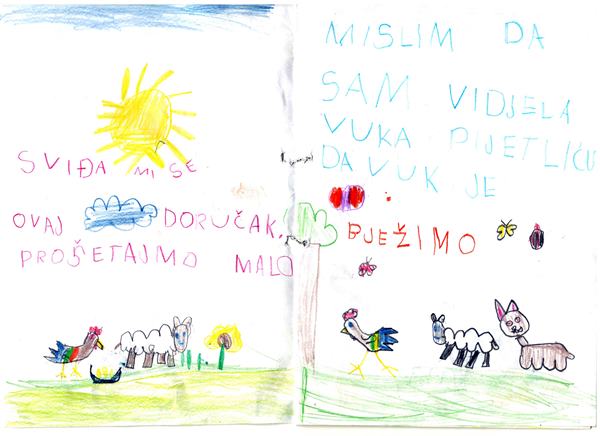 SVIĐA MI SE
OVAJ DORUČAK,
PROŠETAJMO MALO
MISLIM DA
SAM VIDJELA
VUKA PIJETLIĆU
DA VUK JE
BJEŽIMO